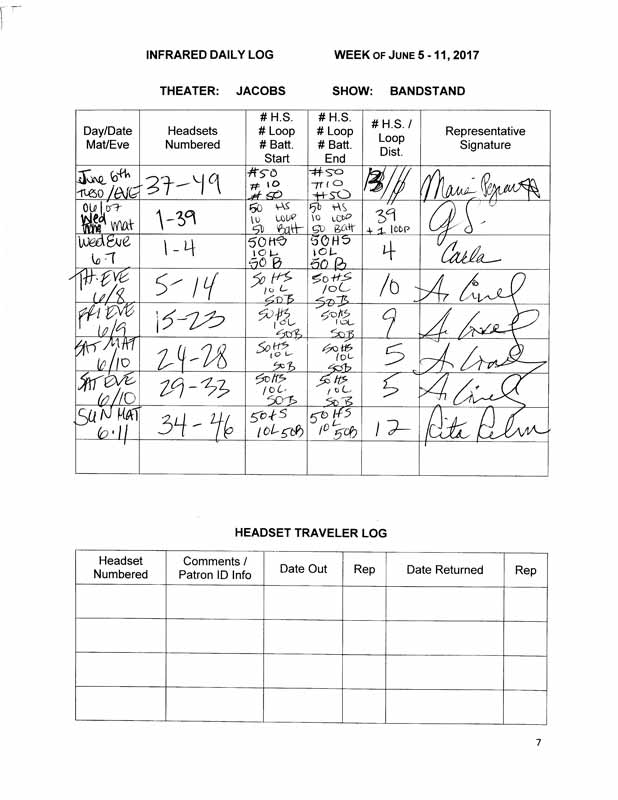 INFRARED DAILY LOG WEEK OF JUNE 5 - 11, 2017
THEATER: JACOBS SHOW: BANDSTAND
Day/Date Mat/Eve Headsets Numbered # H.S. # Loop # Batt. Start # H.S. # Loop # Batt. End # H.S. / Loop Dist. Representative Signature
June 6th TUES/EVE 37-49 #50 #10 #50 #50 #10 #50 Marie
06/07 Wed mat 1-39 50 HS 10 LOOP 50 Batt 50 HS 10 LOOP 50 Batt 39 + 1 LOOP G S.
Wed Eve 6-7 1-4 50HS 10L 50B 50HS 10L 50B 4 Carla
TH-EVE 6/8 5-14 50HS 10L 50B 50HS 10L 50B 10 A.
FRI EVE 6/9 15-23 50HS 10L 50B 50HS 10L 50B 9 A.
SAT MAT 6/10 24-28 50HS 10L 50B 50HS 10L 50B 5 A.
SAT EVE 6/10 29-33 50HS 10L 50B 50HS 10L 50B 5 A.
SUN MAT 6.11 34-46 50HS 10L 50B 50HS 10L 50B 12 Rita
HEADSET TRAVELER LOG
Headset Numbered Comments / Patron ID Info Date Out Rep Date Returned Rep
7